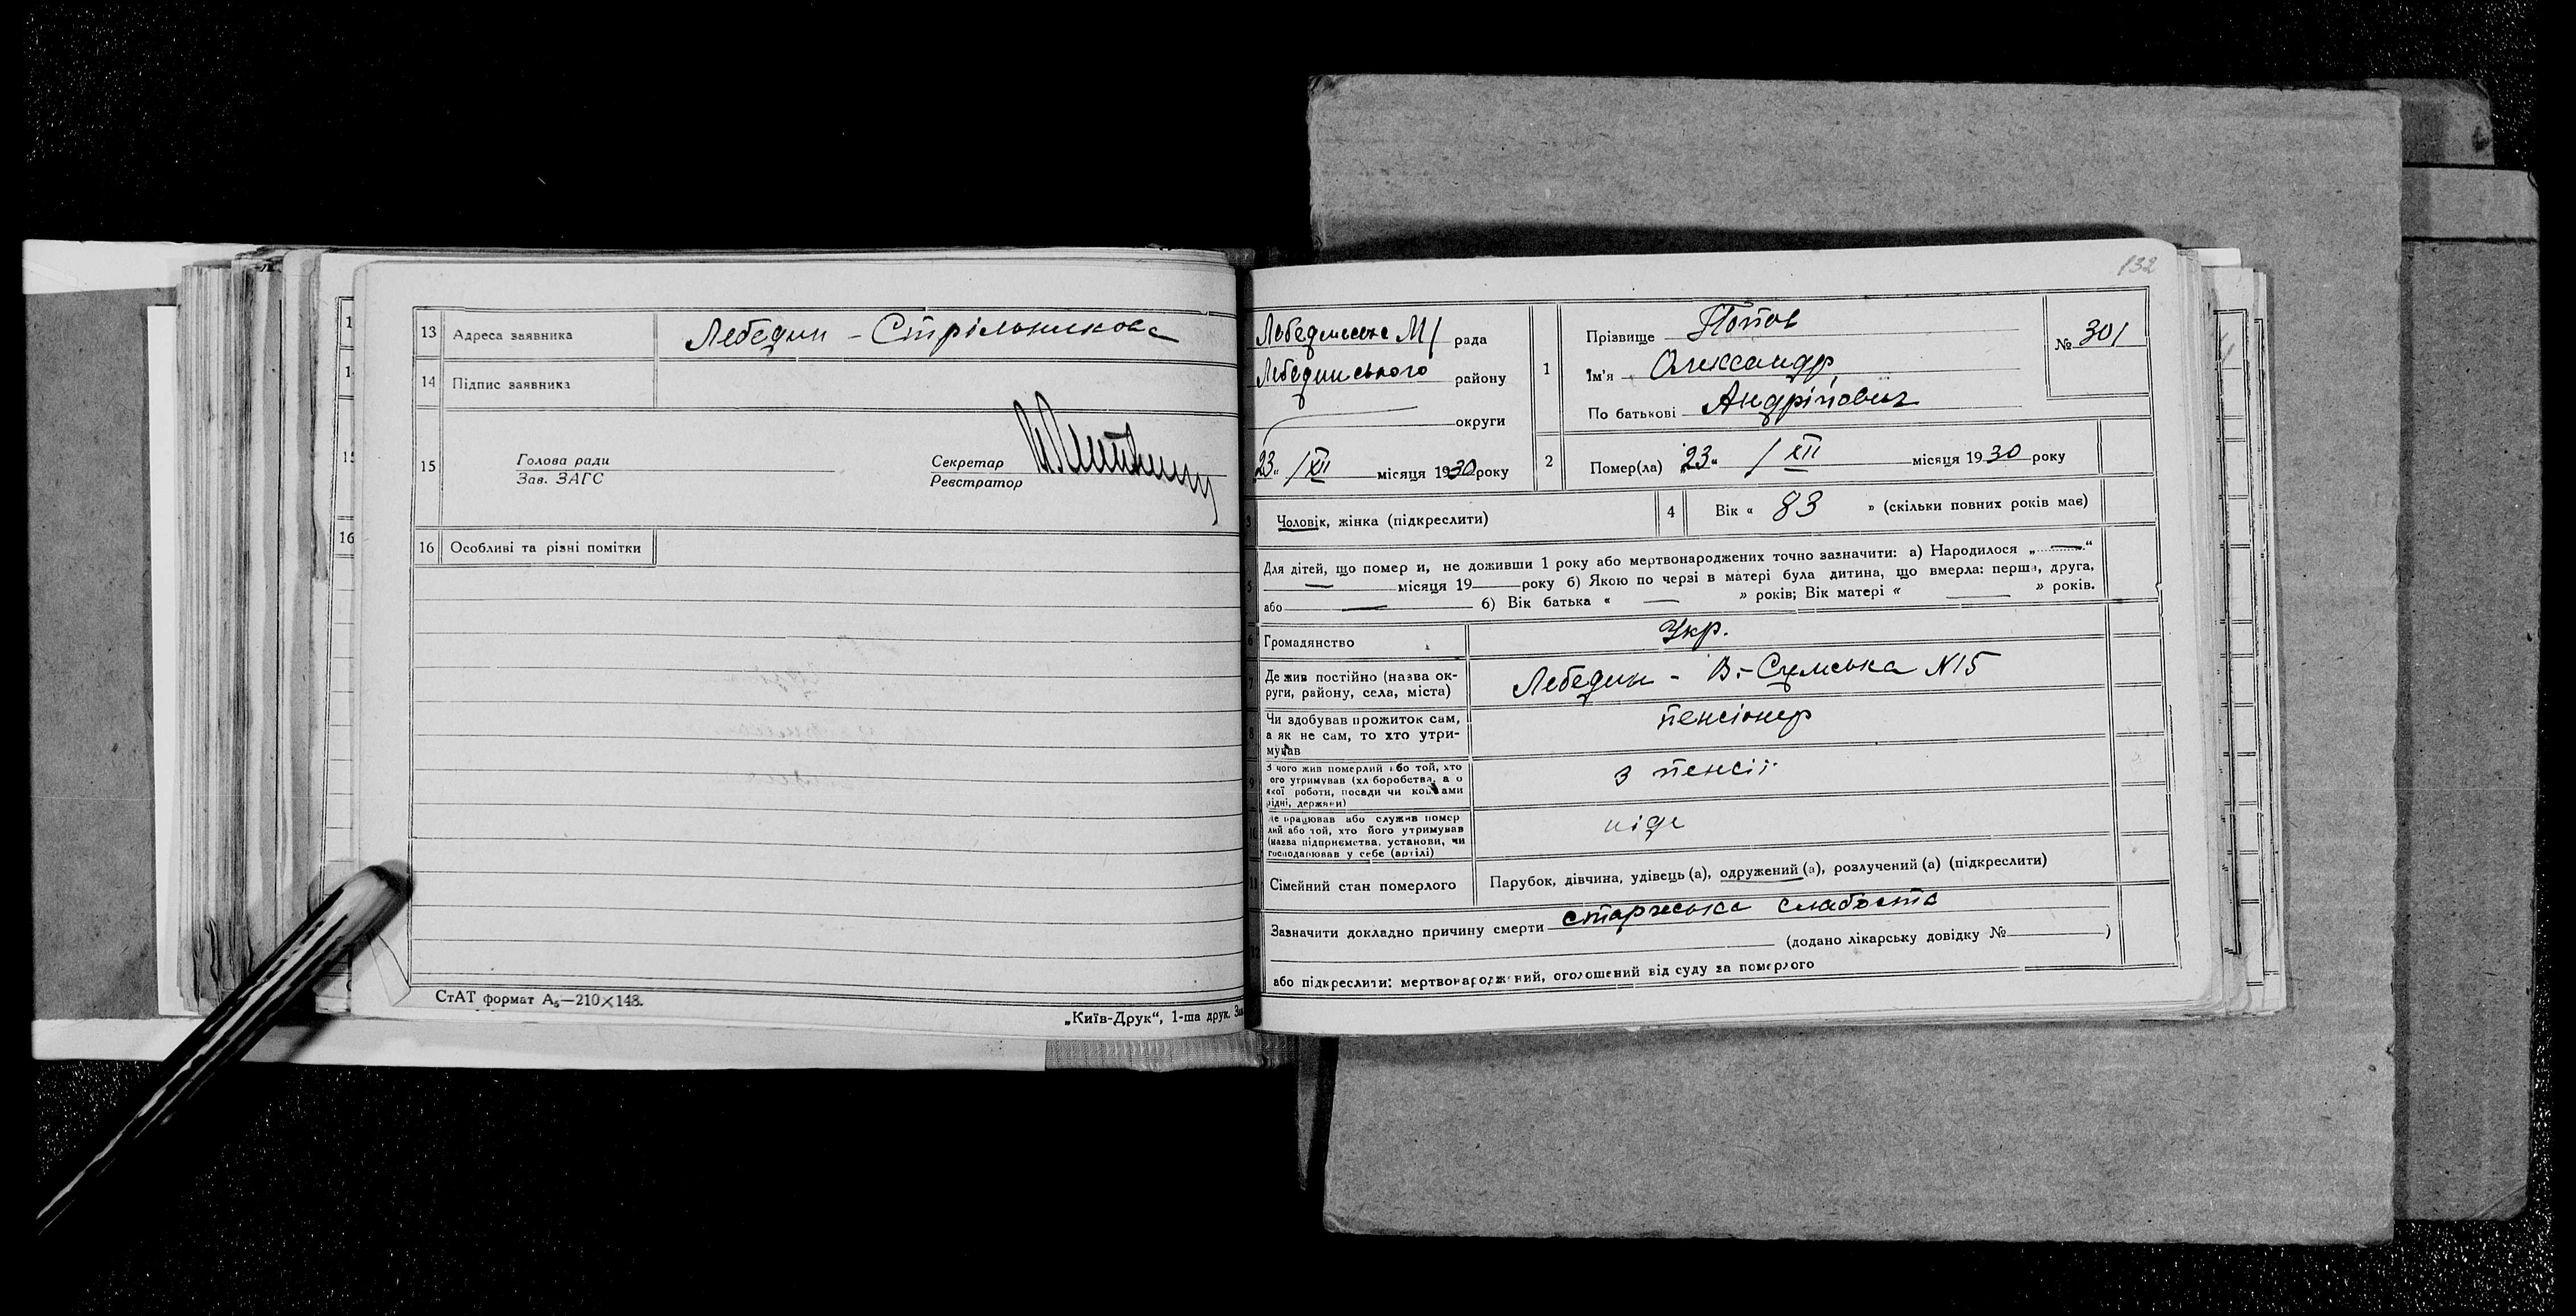 13 Адреса заявника Лебедин - Стрільникова
14 Підпис заявника
15 Голова ради
Зав. ЗАГС
Секретар
Реєстратор
16 Особливі та різні помітки
СтАТ формат А₅—210×148.
„Київ-Друк“, 1-ша друк. Зам
132
Лебединське М/ рада
Лебединського району
округи
„23“ /XII місяця 1930 року
1 Прізвище Попов
Ім'я Олександр
По батькові Андрійович
№ 301
2 Помер(ла) „23“ / XII місяця 1930 року
3 Чоловік, жінка (підкреслити)
4 Вік « 83 » (скільки повних років має)
5 Для дітей, що помер и, не доживши 1 року або мертвонароджених точно зазначити: а) Народилося „ — “
— місяця 19 — року б) Якою по черзі в матері була дитина, що вмерла: перша, друга,
або — б) Вік батька « — » років; Вік матері « — » років.
6 Громадянство Укр.
7 Де жив постійно (назва ок-
руги, району, села, міста) Лебедин - В.-Сумська N15
8 Чи здобував прожиток сам,
а як не сам, то хто утри-
мував пенсіонер
9 З чого жив померлий або той, хто
ого утримував (хл боробства, а о
якої роботи, посади чи коштами
рідні, держави) з пенсії
10 Де працював або служив помер
лий або той, хто його утримував
(назва підприємства, установи, чи
господарював у себе (артілі) ніде
11 Сімейний стан померлого Парубок, дівчина, удівець (а), одружений (а), розлучений (а) (підкреслити)
12 Зазначити докладно причину смерти старческа слабость
(додано лікарську довідку № )
або підкреслити: мертвонароджений, оголошений від суду за померлого